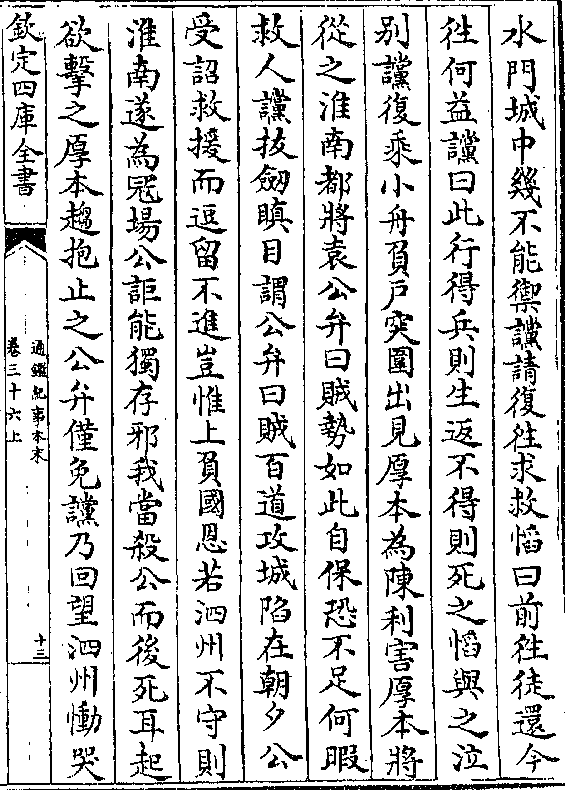 水門城中幾不能禦讜請復徃求救慆曰前徃徒還今
徃何益讜曰此行得兵則生返不得則死之慆與之泣
别讜復乘小舟負戸突圍出見厚本為陳利害厚本將
從之淮南都將袁公弁曰賊勢如此自保恐不足何暇
救人讜拔劒瞋目謂公弁曰賊百道攻城陷在朝夕公
受詔救援而逗留不進豈惟上負國恩若泗州不守則
淮南遂為冦場公詎能獨存邪我當殺公而後死耳起
欲擊之厚本趨抱止之公弁僅免讜乃回望泗州慟哭
欽定四庫全書
通鑑紀事本末
卷三十六上
十三